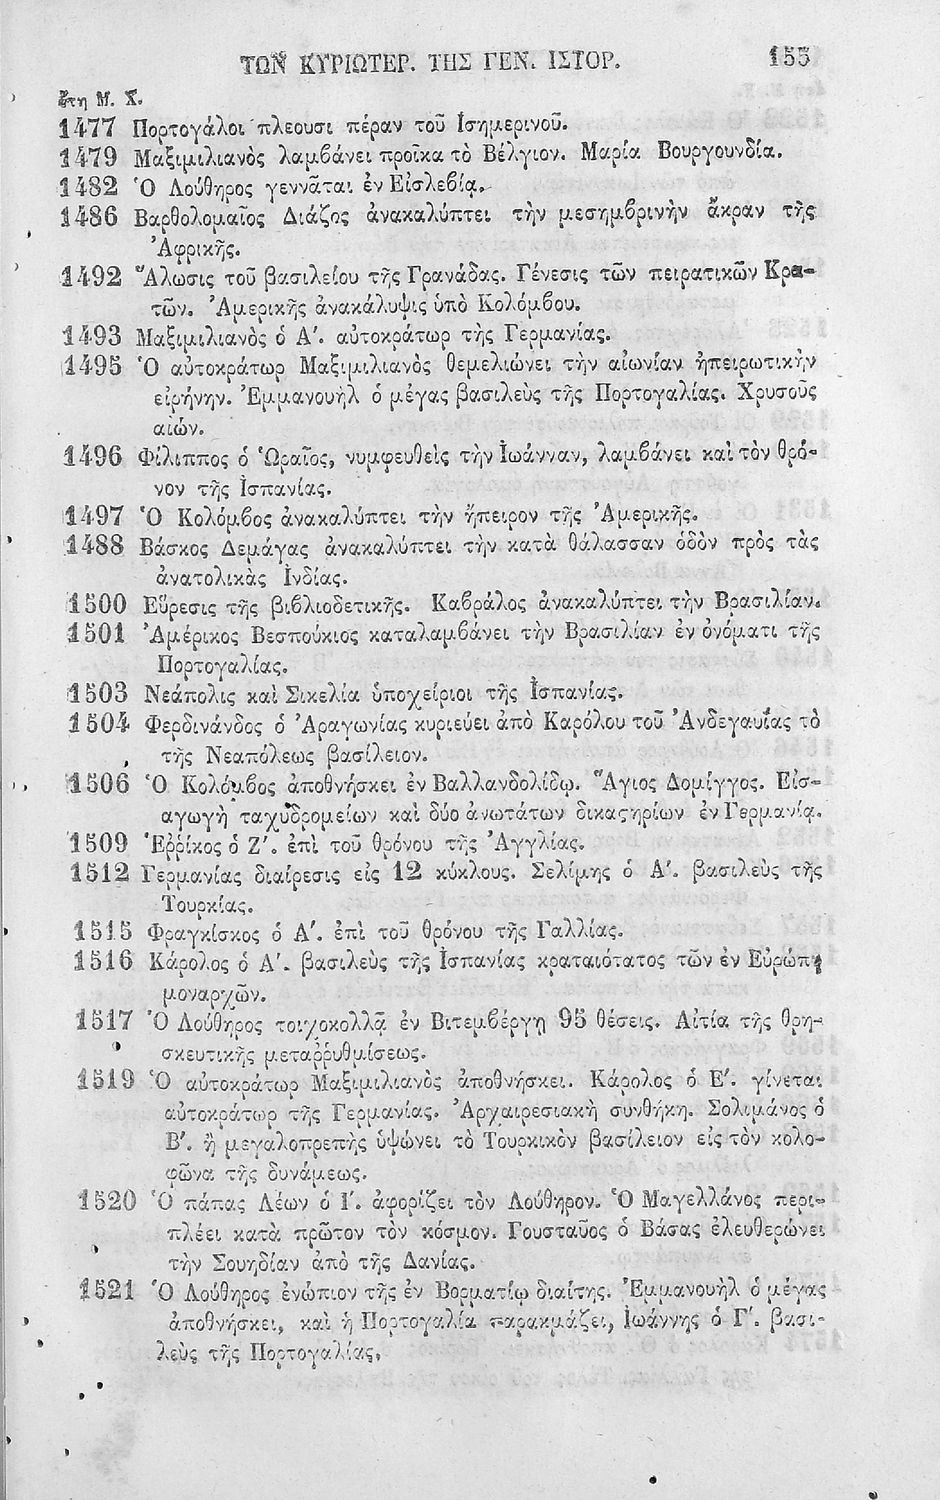 ΤΩΝ ΚΥΡΙΩΤΕΡ. ΤΗΣ ΓΕΝ. ΙΣΤΟΡ. 155
ἔτη Μ. Χ.
1477 Πορτογάλοι πλεουσι πέραν τοῦ Ἰσημερινοῦ.
1479 Μαξιμιλιανὸς λαμβάνει προῖκα τὸ Βέλγιον. Μαρία Βουργουνδία.
1482 Ὁ Λούθηρος γεννᾶται ἐν Εἰσλεβίᾳ.
1486 Βαρθολομαῖος Διάζος ἀνακαλύπτει τὴν μεσημβρινὴν ἄκραν τῆς
Ἀφρικῆς.
1492 Ἅλωσις τοῦ βασιλείου τῆς Γρανάδας. Γένεσις τῶν πειρατικῶν Κρα-
τῶν. Ἀμερικῆς ἀνακάλυψις ὑπὸ Κολόμβου.
1493 Μαξιμιλιανὸς ὁ Α΄. αὐτοκράτωρ τῆς Γερμανίας.
1495 Ὁ αὐτοκράτωρ Μαξιμιλιανὸς θεμελιώνει τὴν αἰωνίαν ἠπειρωτικὴν
εἰρήνην. Ἐμμανουὴλ ὁ μέγας βασιλεὺς τῆς Πορτογαλίας. Χρυσοῦς
αιών.
1496 Φίλιππος ὁ Ὡραῖος, νυμφευθεὶς τὴν Ἰωάνναν, λαμβάνει καὶ τὸν θρό-
νον τῆς Ἱσπανίας.
1497 Ὁ Κολόμβος ἀνακαλύπτει τὴν ἤπειρον τῆς Ἀμερικῆς.
1488 Βάσκος Δεμάγας ἀνακαλύπτει τὴν κατὰ θάλασσαν ὁδὸν πρὸς τὰς
ἀνατολικὰς Ἰνδίας.
1500 Εὕρεσις τῆς βιβλιοδετικῆς. Καβράλος ἀνακαλύπτει τὴν Βρασιλίαν.
1501 Ἀμέρικος Βεσπούκιος καταλαμβάνει τὴν Βρασιλίαν ἐν ὀνόματι τῆς
Πορτογαλίας.
1503 Νεάπολις καὶ Σικελία ὑποχείριοι τῆς Ἱσπανίας.
1504 Φερδινάνδος ὁ Ἀραγωνίας κυριεύει ἀπὸ Καρόλου τοῦ Ἀνδεγαυΐας τὸ
τῆς Νεαπόλεως βασίλειον.
1506 Ὁ Κολόμβος ἀποθνήσκει ἐν Βαλλανδολίδῳ. Ἅγιος Δομίγγος. Εἰσ-
αγωγὴ ταχυδρομείων καὶ δύο ἀνωτάτων δικαςηρίων ἐν Γερμανίᾳ.
1509 Ἐῤῥίκος ὁ Ζ΄. ἐπὶ τοῦ θρόνου τῆς Ἀγγλίας.
1512 Γερμανίας διαίρεσις εἰς 12 κύκλους. Σελίμης ὁ Α΄. βασιλεὺς τῆς
Τουρκίας.
1515 Φραγκίσκος ὁ Α΄. ἐπὶ τοῦ θρόνου τῆς Γαλλίας.
1516 Κάρολος ὁ Α΄. βασιλεὺς τῆς Ἱσπανίας κραταιότατος τῶν ἐν Εὐρώπῃ
μοναρχῶν.
1517 Ὁ Λούθηρος τοιχοκολλᾷ ἐν Βιτεμβέργῃ 95 θέσεις. Αἰτία τῆς θρη-
σκευτικῆς μεταῤῥυθμίσεως.
1519 Ὁ αὐτοκράτωρ Μαξιμιλιανὸς ἀποθνήσκει. Κάρολος ὁ Ε΄. γίνεται
αὐτοκράτωρ τῆς Γερμανίας. Ἀρχαιρεσιακὴ συνθήκη. Σολιμάνος ὁ
Β΄. ἢ μεγαλοπρεπὴς ὑψώνει τὸ Τουρκικὸν βασίλειον εἰς τὸν κολο-
φῶνα τῆς δυνάμεως.
1520 Ὁ πάπας Λέων ὁ Ι΄. ἀφορίζει τὸν Λούθηρον. Ὁ Μαγελλάνος περι-
πλέει κατὰ πρῶτον τὸν κόσμον. Γουσταῦος ὁ Βάσας ἐλευθερώνει
τὴν Σουηδίαν ἀπὸ τῆς Δανίας.
1521 Ὁ Λούθηρος ἐνώπιον τῆς ἐν Βορματίῳ διαίτης. Ἐμμανουὴλ ὁ μέγας
ἀποθνήσκει, καὶ ἡ Πορτογαλία παρακμάζει, Ἰωάννης ὁ Γ΄. βασι-
λεὺς τῆς Πορτογαλίας.